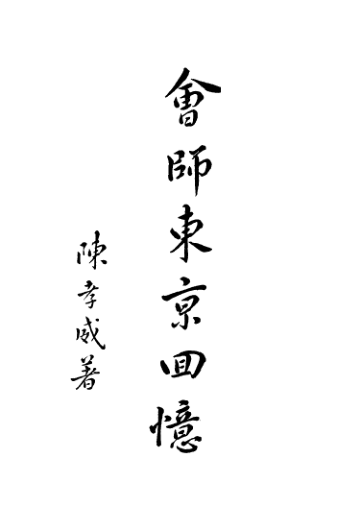 會師東京回憶
陳孝威著